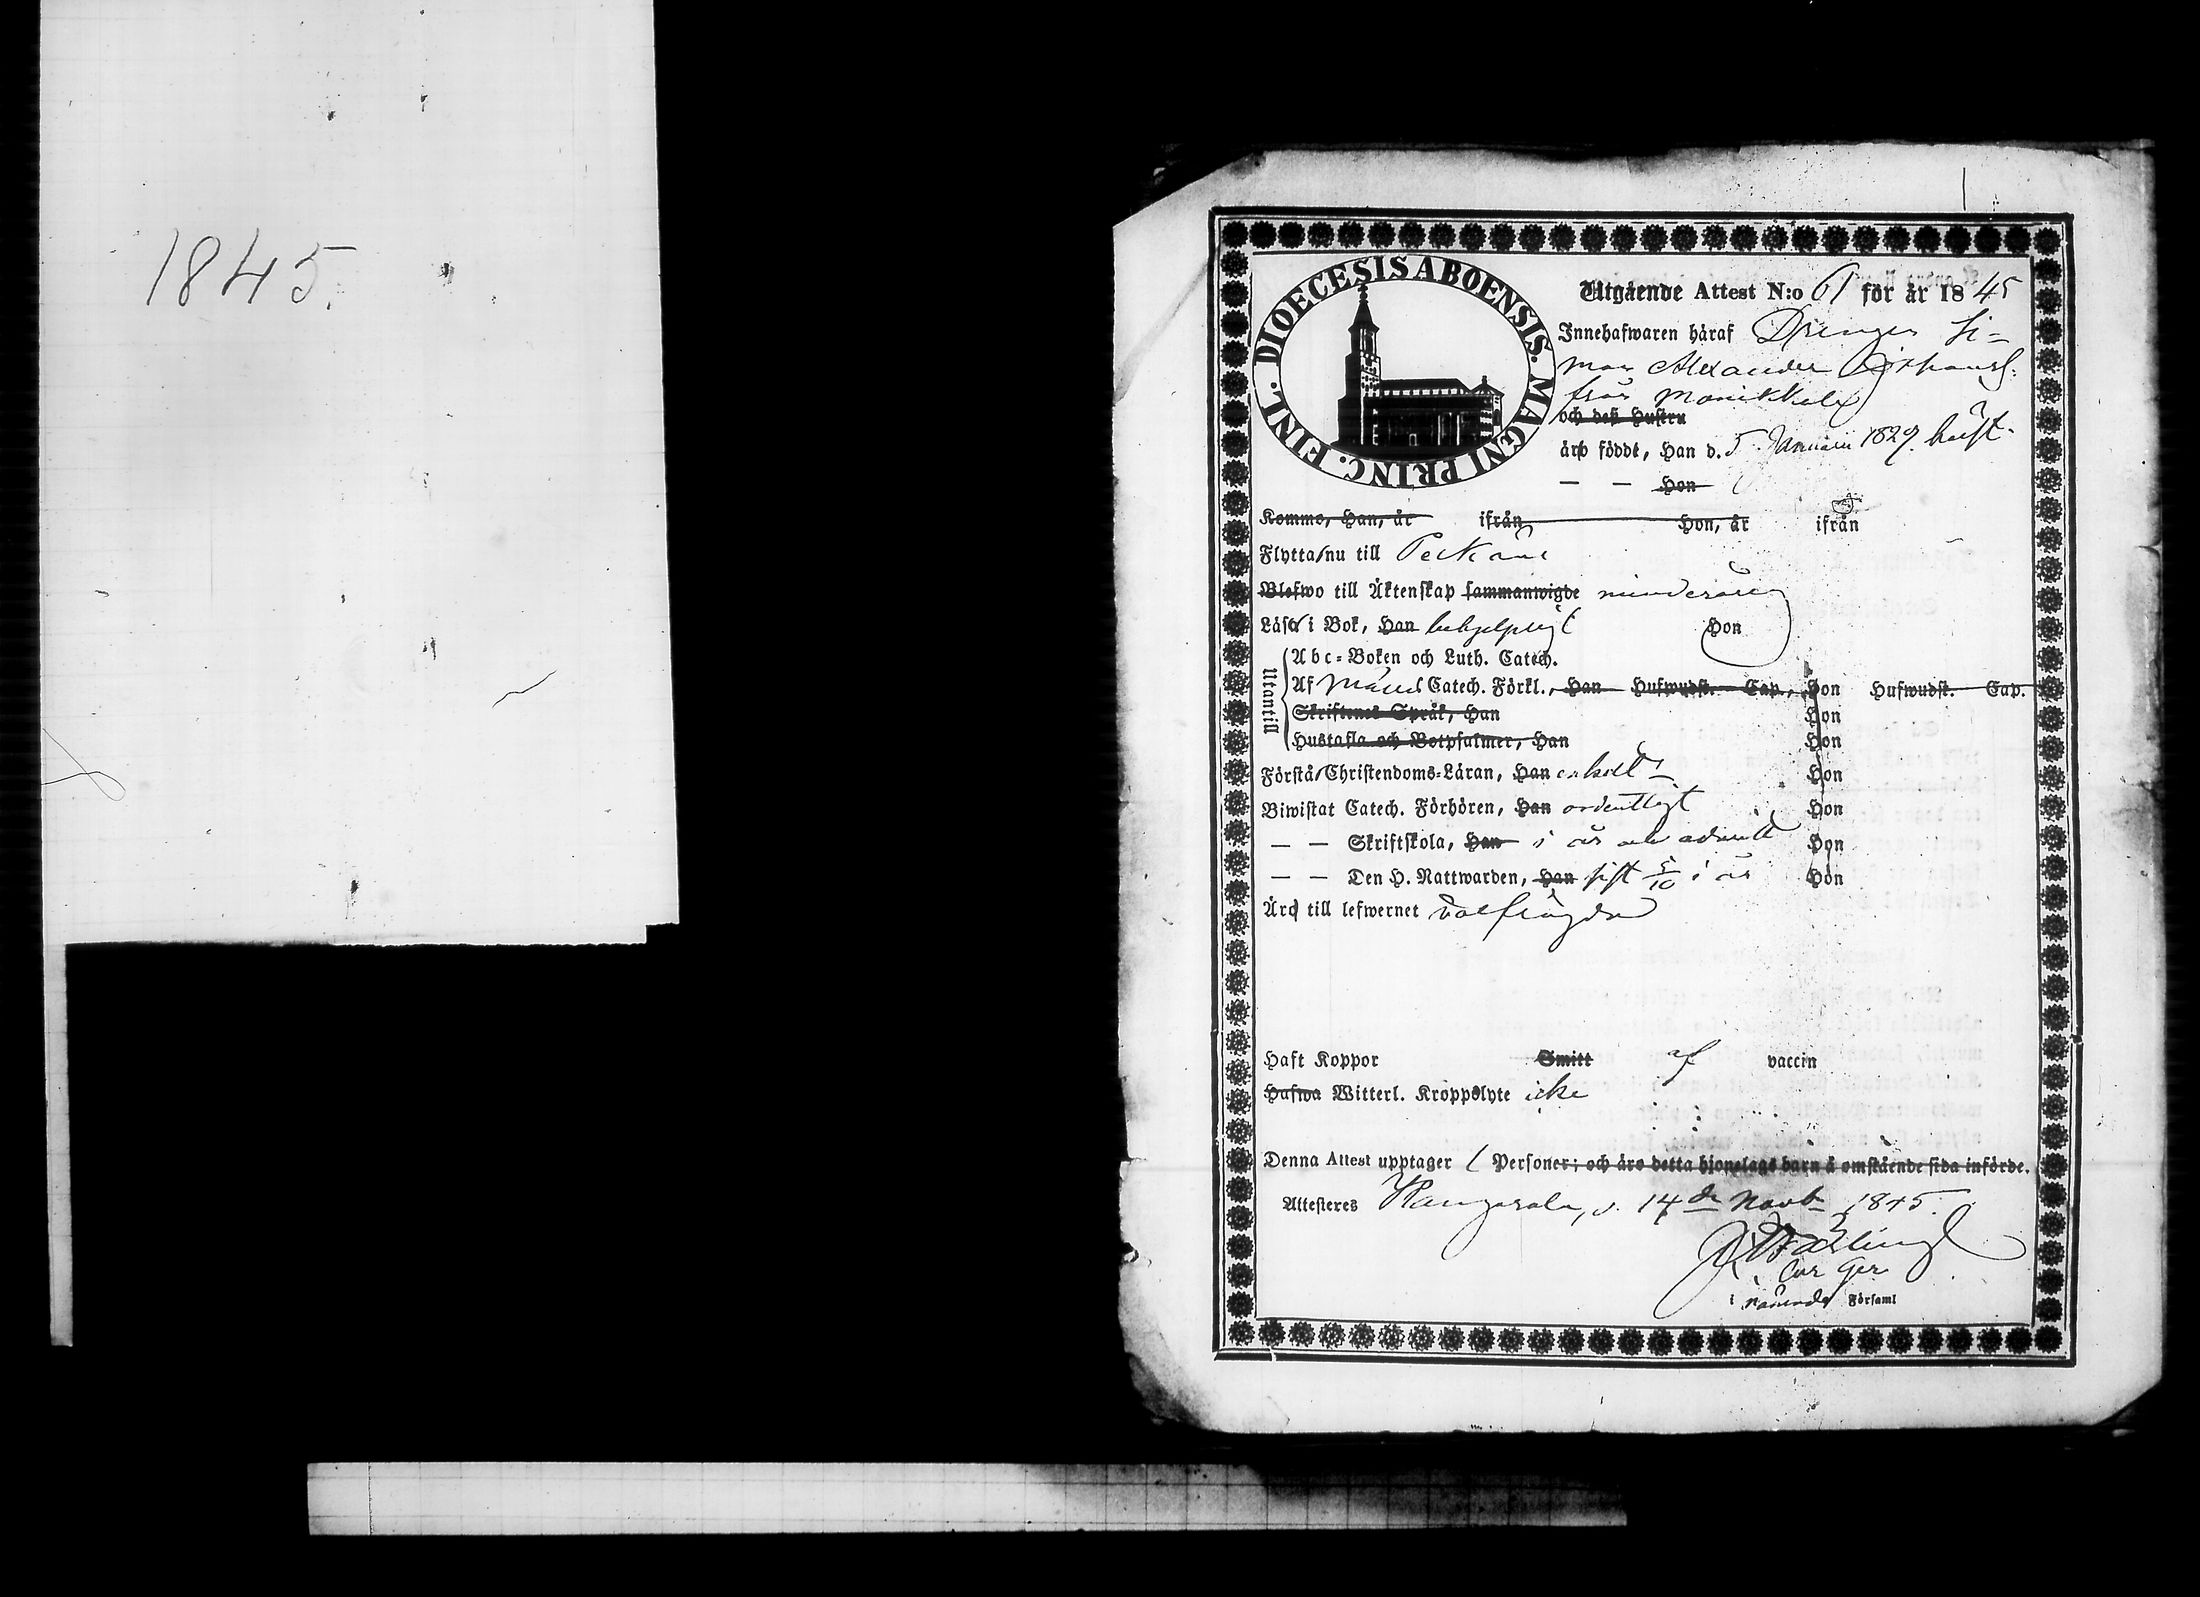 1845.
DIOECESIS ABOENSIS. MAGNI PRINC. FINL.
Utgående Attest N:o 61 för år 1845
Innehafwaren häraf Drengen Si-
mon Alexander
från Manikkala
och deß Hustru
äro födde, Han d. 5 Januari 1829.
— — Hon
Komme, Han, år ifrån Hon, år ifrån
Flytta nu till Pelkäne
Blefwo till Äktenskap sammanwigde minderårig
Läsa i Bok, Han behjelpligt Hon
Utantill
Abc-Boken och Luth. Catech.
Af Catech. Förkl., Han Hufwudst. Cap., Hon Hufwudst. Cap.
Skriftenes Språk, Han Hon
Hustafla och Botpsalmer, Han Hon
Förstå Christendoms-Läran, Han enkelt Hon
Biwistat Catech. Förhören, Han ordentligt Hon
— — Skriftskola, Han i år och admitt Hon
— — Den H. Nattwarden, Han sist 5/10 i år Hon
Äro till lefwernet välfrägdad
Haft Koppor Smitt af vaccin
Hafwa Witterl. Kroppslyte icke
Denna Attest upptager 1 Personer; och äro detta hjonelags barn å omstående sida införde.
Attesteres Kangasala, d. 14de Novb 1845.
i Församl